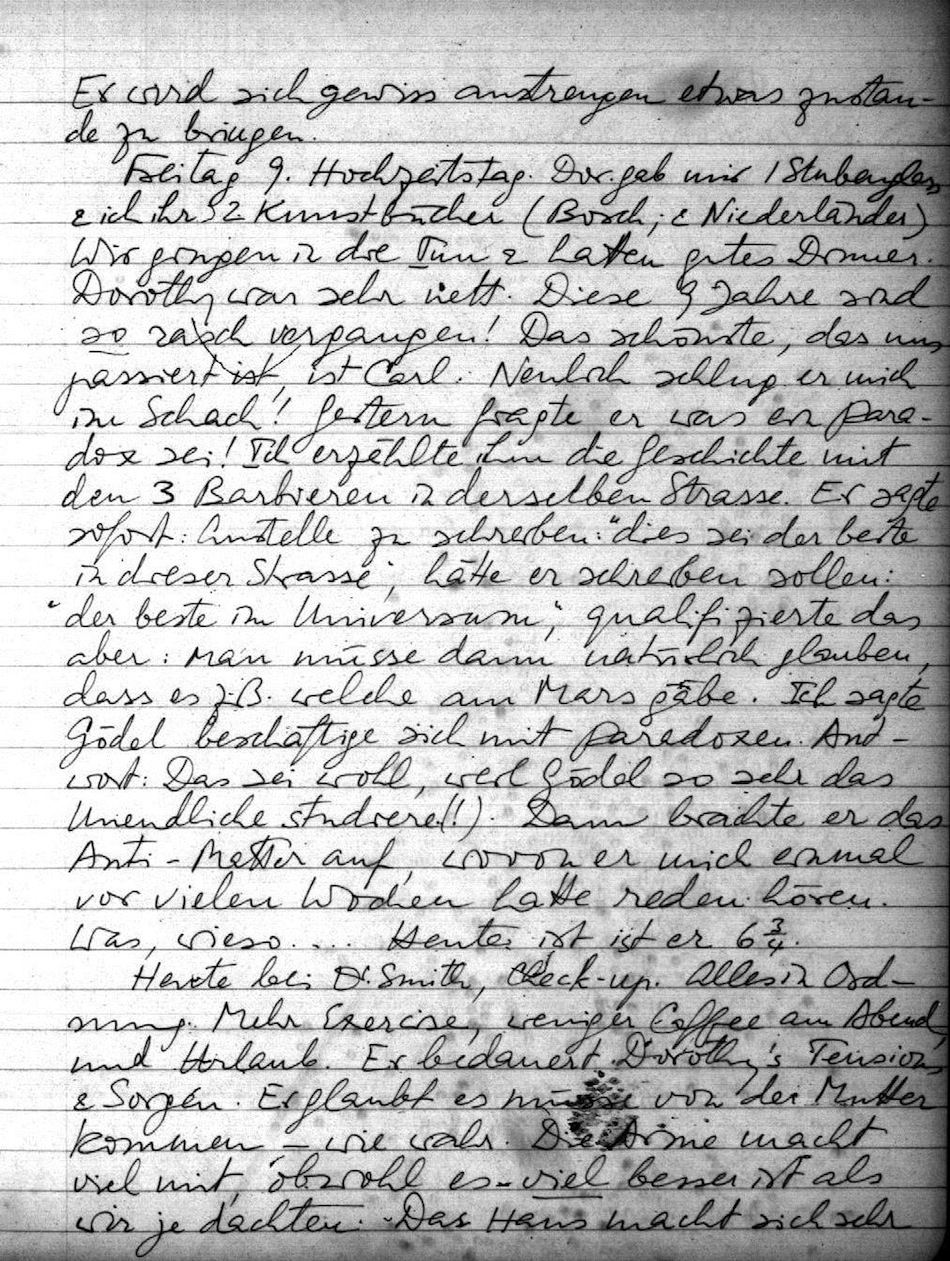 Er wird sich gewiss anstrengen etwas zustan-
de zu bringen.
Freitag 9. Hochzeitstag. Dor. gab mir 1 Stubenglas
& ich ihr 2 Kunstbücher (Bosch; & Niederländer)
Wir gingen in die Inn & hatten gutes Dinner.
Dorothy war sehr nett. Diese 9 Jahre sind
so rasch vergangen! Das schönste, das uns
passiert ist, ist Carl. Neulich schlug er mich
im Schach! Gestern fragte er was ein Para-
dox sei! Ich erzählte ihm die Geschichte mit
den 3 Barbieren in derselben Strasse. Er sagte
sofort: Anstelle zu schreiben: "dies sei der beste
in dieser Strasse", hätte er schreiben sollen:
"der beste im Universum", qualifizierte das
aber: man müsse dann natürlich glauben,
dass es z.B. welche am Mars gäbe. Ich sagte
Gödel beschäftige sich mit Paradoxen. Ant-
wort: Das sei wohl, weil Gödel so sehr das
Unendliche studiere(!). Dann brachte er das
Anti-Matter auf, wovon er mich einmal
vor vielen Wochen hatte reden hören.
Was, wieso.... Heute ist ist er 6 3/4.
Heute bei Dr. Smith, Check-up. Alles in Ord-
nung. Mehr Exercise, weniger Coffee am Abend,
und Urlaub. Er bedauert Dorothy's Tensions
& Sorgen. Er glaubt es müsse von der Mutter
kommen – wie wahr. Die Arme macht
viel mit, obwohl es viel besser ist als
wir je dachten. Das Haus macht sich sehr